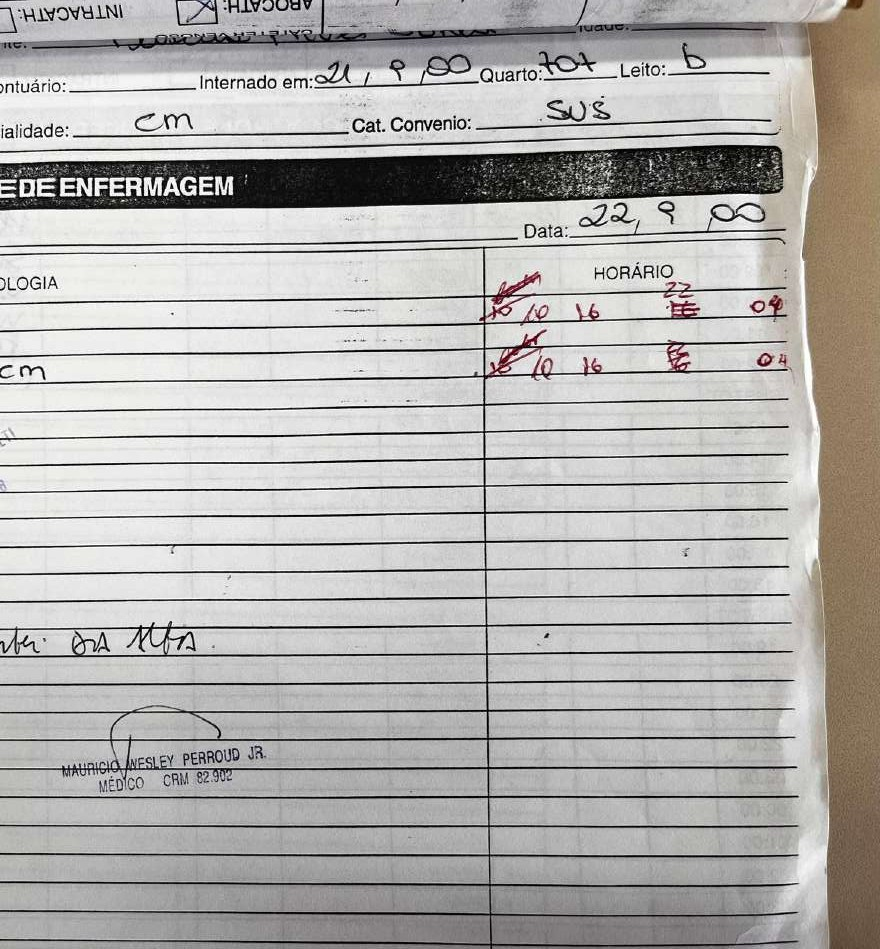 INTRACATH: ABOCATH:
ontuário: Internado em: 21, 9, 00 Quarto: 707 Leito: b
ialidade: cm Cat. Convenio: SUS
E DE ENFERMAGEM
Data: 22, 9, 00
OLOGIA HORÁRIO
22
10 16 04
cm 10 16 04
MAURICIO WESLEY PERROUD JR.
MÉDICO CRM 82.902